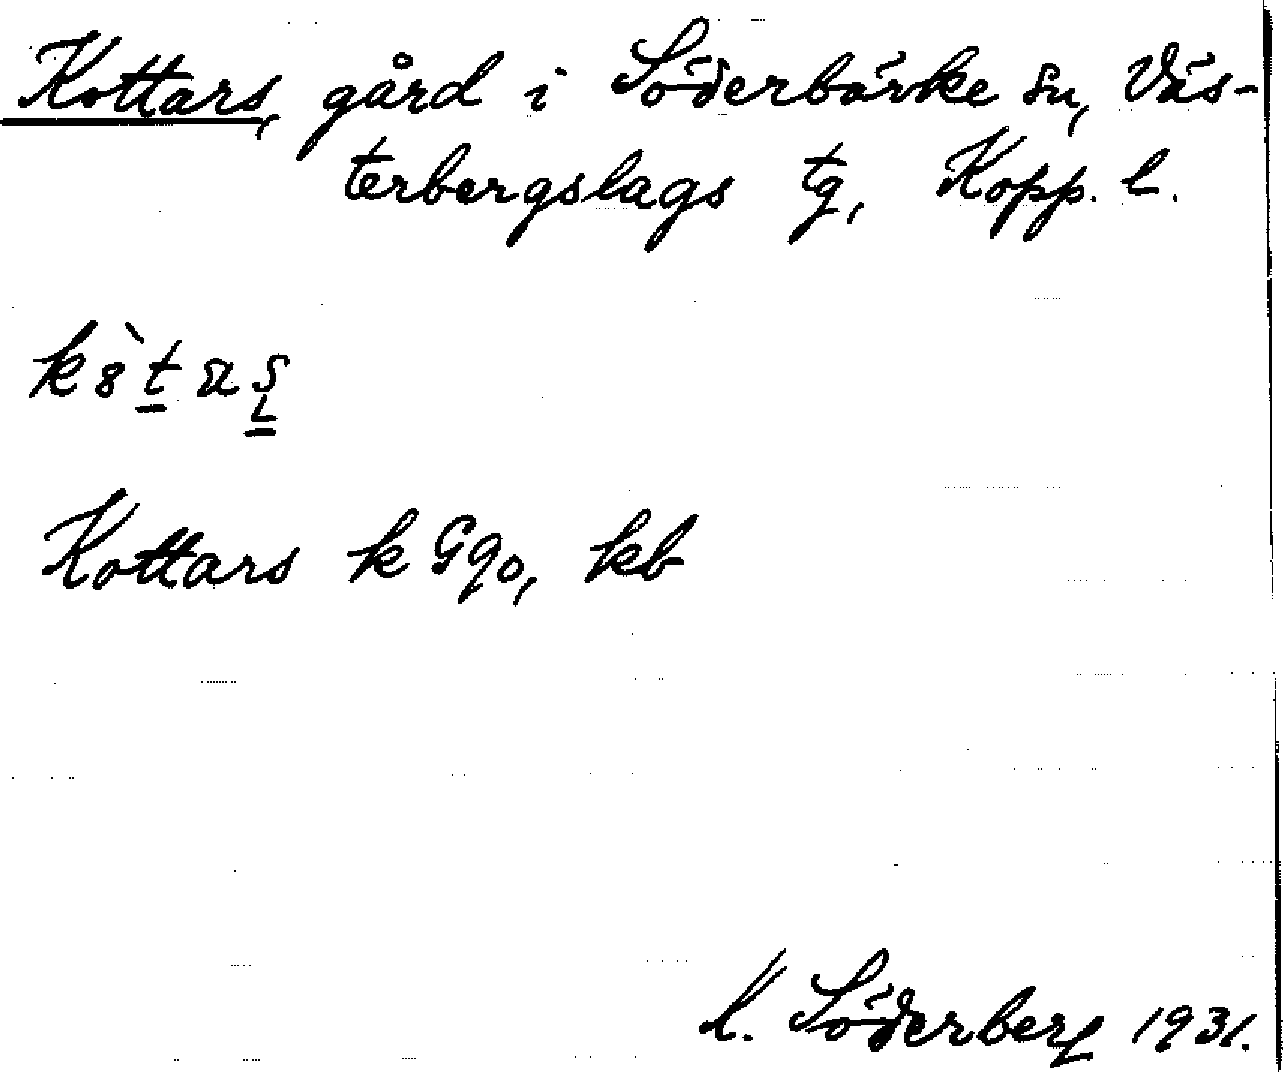 Kottars, gård i Söderbärke sn, Väs-
terbergslags tg, Kopp. l.
Kottars k Gqo, kb
Söderberg 1931.